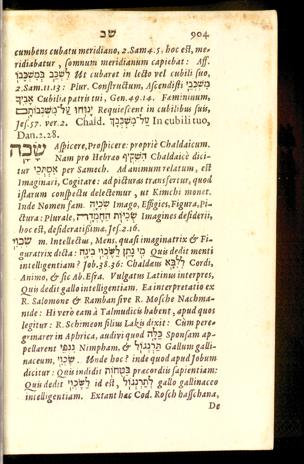 שכ 904
cumbens cubatu meridiano, 2. Sam. 4. 5. hoc est, me-
ridiabatur, somnum meridianum capiebat: Aff.
לִשְׁכַּב בְּמִשְׁכָּבוֹ Ut cubaret in lecto vel cubili suo,
2. Sam. 11. 13: Plur. Constructum, Ascendisti מִשְׁכְּבֵי
אָבִיךָ Cubilia patris tui, Gen. 49. 14. Fœmininum,
יָנוּחוּ עַל־מִשְׁכְּבוֹתָם Requiescent in cubilibus suis,
Jes. 57. ver. 2. Chald. עַל־מִשְׁכְּבָךְ In cubili tuo,
Dan. 2. 28.
שָׂכָה Aspicere, Prospicere: propriè Chaldaicum.
Nam pro Hebræo הִשְׁקִיף Chaldaicè dici-
tur אִסְתְּכִי per Samech. Ad animum relatum, est
Imaginari, Cogitare: ad picturas transfertur, quod
istarum conspectu delectemur, ut Kimchi monet.
Inde Nomen fœm. שְׂכִיָּה Imago, Effigies, Figura, Pi-
ctura: Plurale, שְׂכִיּוֹת הַחֶמְדָּה Imagines desiderii,
hoc est, desideratissimæ, Jes. 2. 16.
שֶׂכְוִי m. Intellectus, Mens, quasi imaginatrix & Fi-
guratrix dicta: מִי נָתַן לַשֶּׂכְוִי בִינָה Quis dedit menti
intelligentiam? Job. 38. 36: Chaldæus לְלִבָּא Cordi,
Animo, & sic Ab. Esra. Vulgatus Latinus interpres,
Quis dedit gallo intelligentiam. Ea interpretatio ex
R. Salomone & Ramban sive R. Mosche Nachma-
nide: Hi verò eam à Talmudicis habent, apud quos
legitur: R. Schimeon filius Lakis dixit: Cùm pere-
grinarer in Aphrica, audivi quod כַּלָּה Sponsam ap-
pellarent נִנְפִי Nimpham, & תַּרְנְגוֹל Gallum galli-
naceum, שֶׂכְוִי. Unde hoc? inde quod apud Jobum
dicitur: Quis indidit בַּטֻּחוֹת præcordiis sapientiam:
Quis dedit לַשֶּׂכְוִי id est, לְתַרְנְגוֹל gallo gallinaceo
intelligentiam. Extant hæc Cod. Rosch hasschana,
De